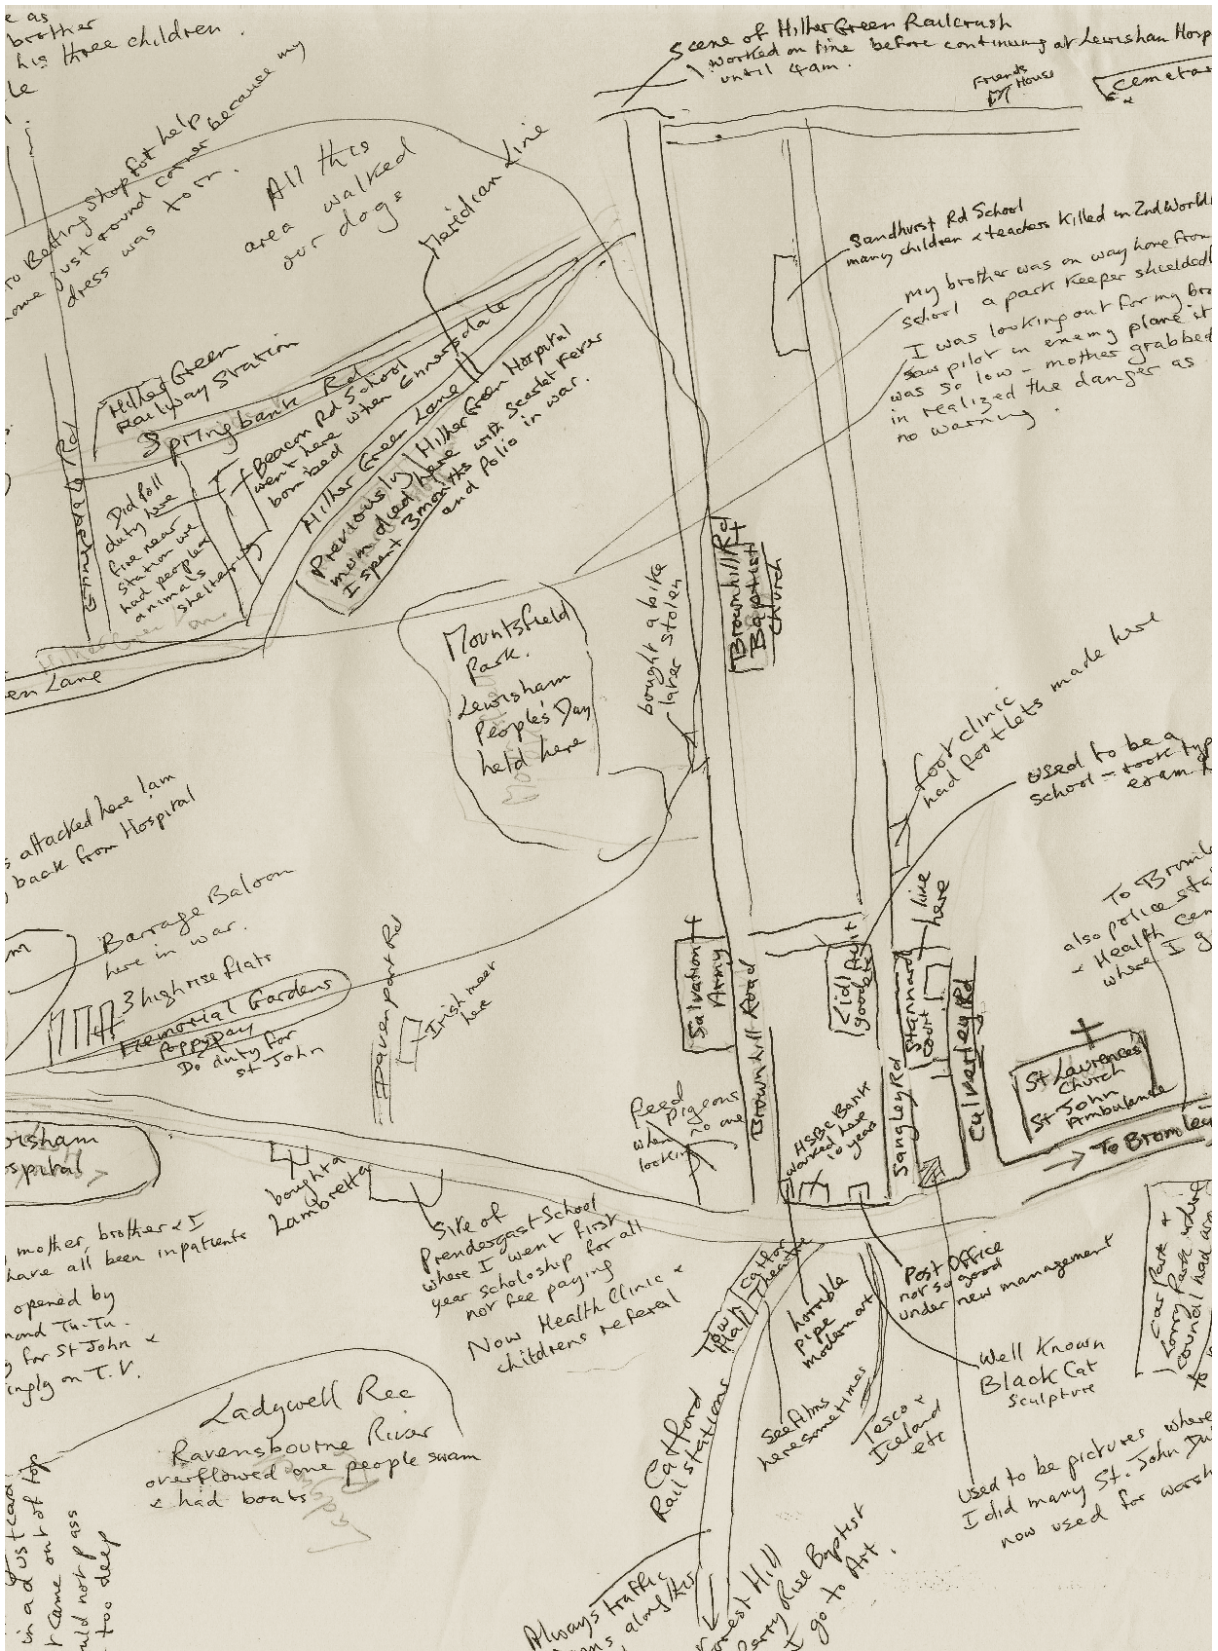 e as
brother
his three children.
le
Scene of Hither Green Railcrush
worked on line before continuing at Lewisham Hosp
until 4am.
Friends
House
cemetar
to Betting Shop for help
home just round corner because my
dress was torn.
All this
area walked
our dogs
Meridian Line
Sandhurst Rd School
many children & teachers killed in 2nd World
my brother was on way home from
school a park keeper shielded
I was looking out for my bro
saw pilot in enemy plane it
was so low - mother grabbed
in realized the danger as
no warning.
Hither Green
Railway Station
Springbank Rd
Ennersdale Rd
Beacon Rd School
went here when Ennersdale
bombed
Did Poll
duty here
fire near
station we
had people &
animals
sheltering
Hither Green Lane
Previously Hither Green Hospital
mum died here
I spent 3 months with Scarlet Fever
and Polio in war.
en Lane
Mountsfield
Park.
Lewisham
People's Day
held here
bought a bike
later stolen
Brownhill Rd
Baptist
Church
foot clinic
had footlets made here
used to be a
school - took typ
exam
s attacked here 1am
back from Hospital
Barrage Baloon
here in war.
3 high rise flats
Memorial Gardens
Poppy Day
Do duty for
St John
Davenport Rd
Irish meet
here
Salvation
Army
Brownhill Road
Lidl
good
I live
here
Stannard
Court
Sangley Rd
Culverley Rd
To Bromle
also police sta
& Health Cen
where I g
St Laurences
Church
St John
Ambulance
→ To Bromley
feed
pigeons
when no one
looking
HSBC Bank
worked here
10 years
wisham
spital
mother, brother & I
have all been inpatients
opened by
mond Tu-Tu.
g for St John &
ingly on T.V.
bought a
Lambretta
Site of
Prendergast School
where I went first
year scholoship for all
not fee paying
Now Health Clinic &
childrens referal
Town
Hall
Catford
Theatre
horrible
pipe
modern art
Post Office
not so good
under new management
Well Known
Black Cat
Sculpture
car park &
lorry park
council had
Ladywell Rec
Ravensbourne River
overflowed one people swam
& had boats
Catford
Rail stations
see films
here sometimes
Tesco &
Iceland
etc
used to be pictures where
I did many St. John Du
now used for worsh
in a dustcart
t came out of top
uld not pass
too deep
Always traffic
along
orest Hill
Perry Rise Baptist
I go to Art.